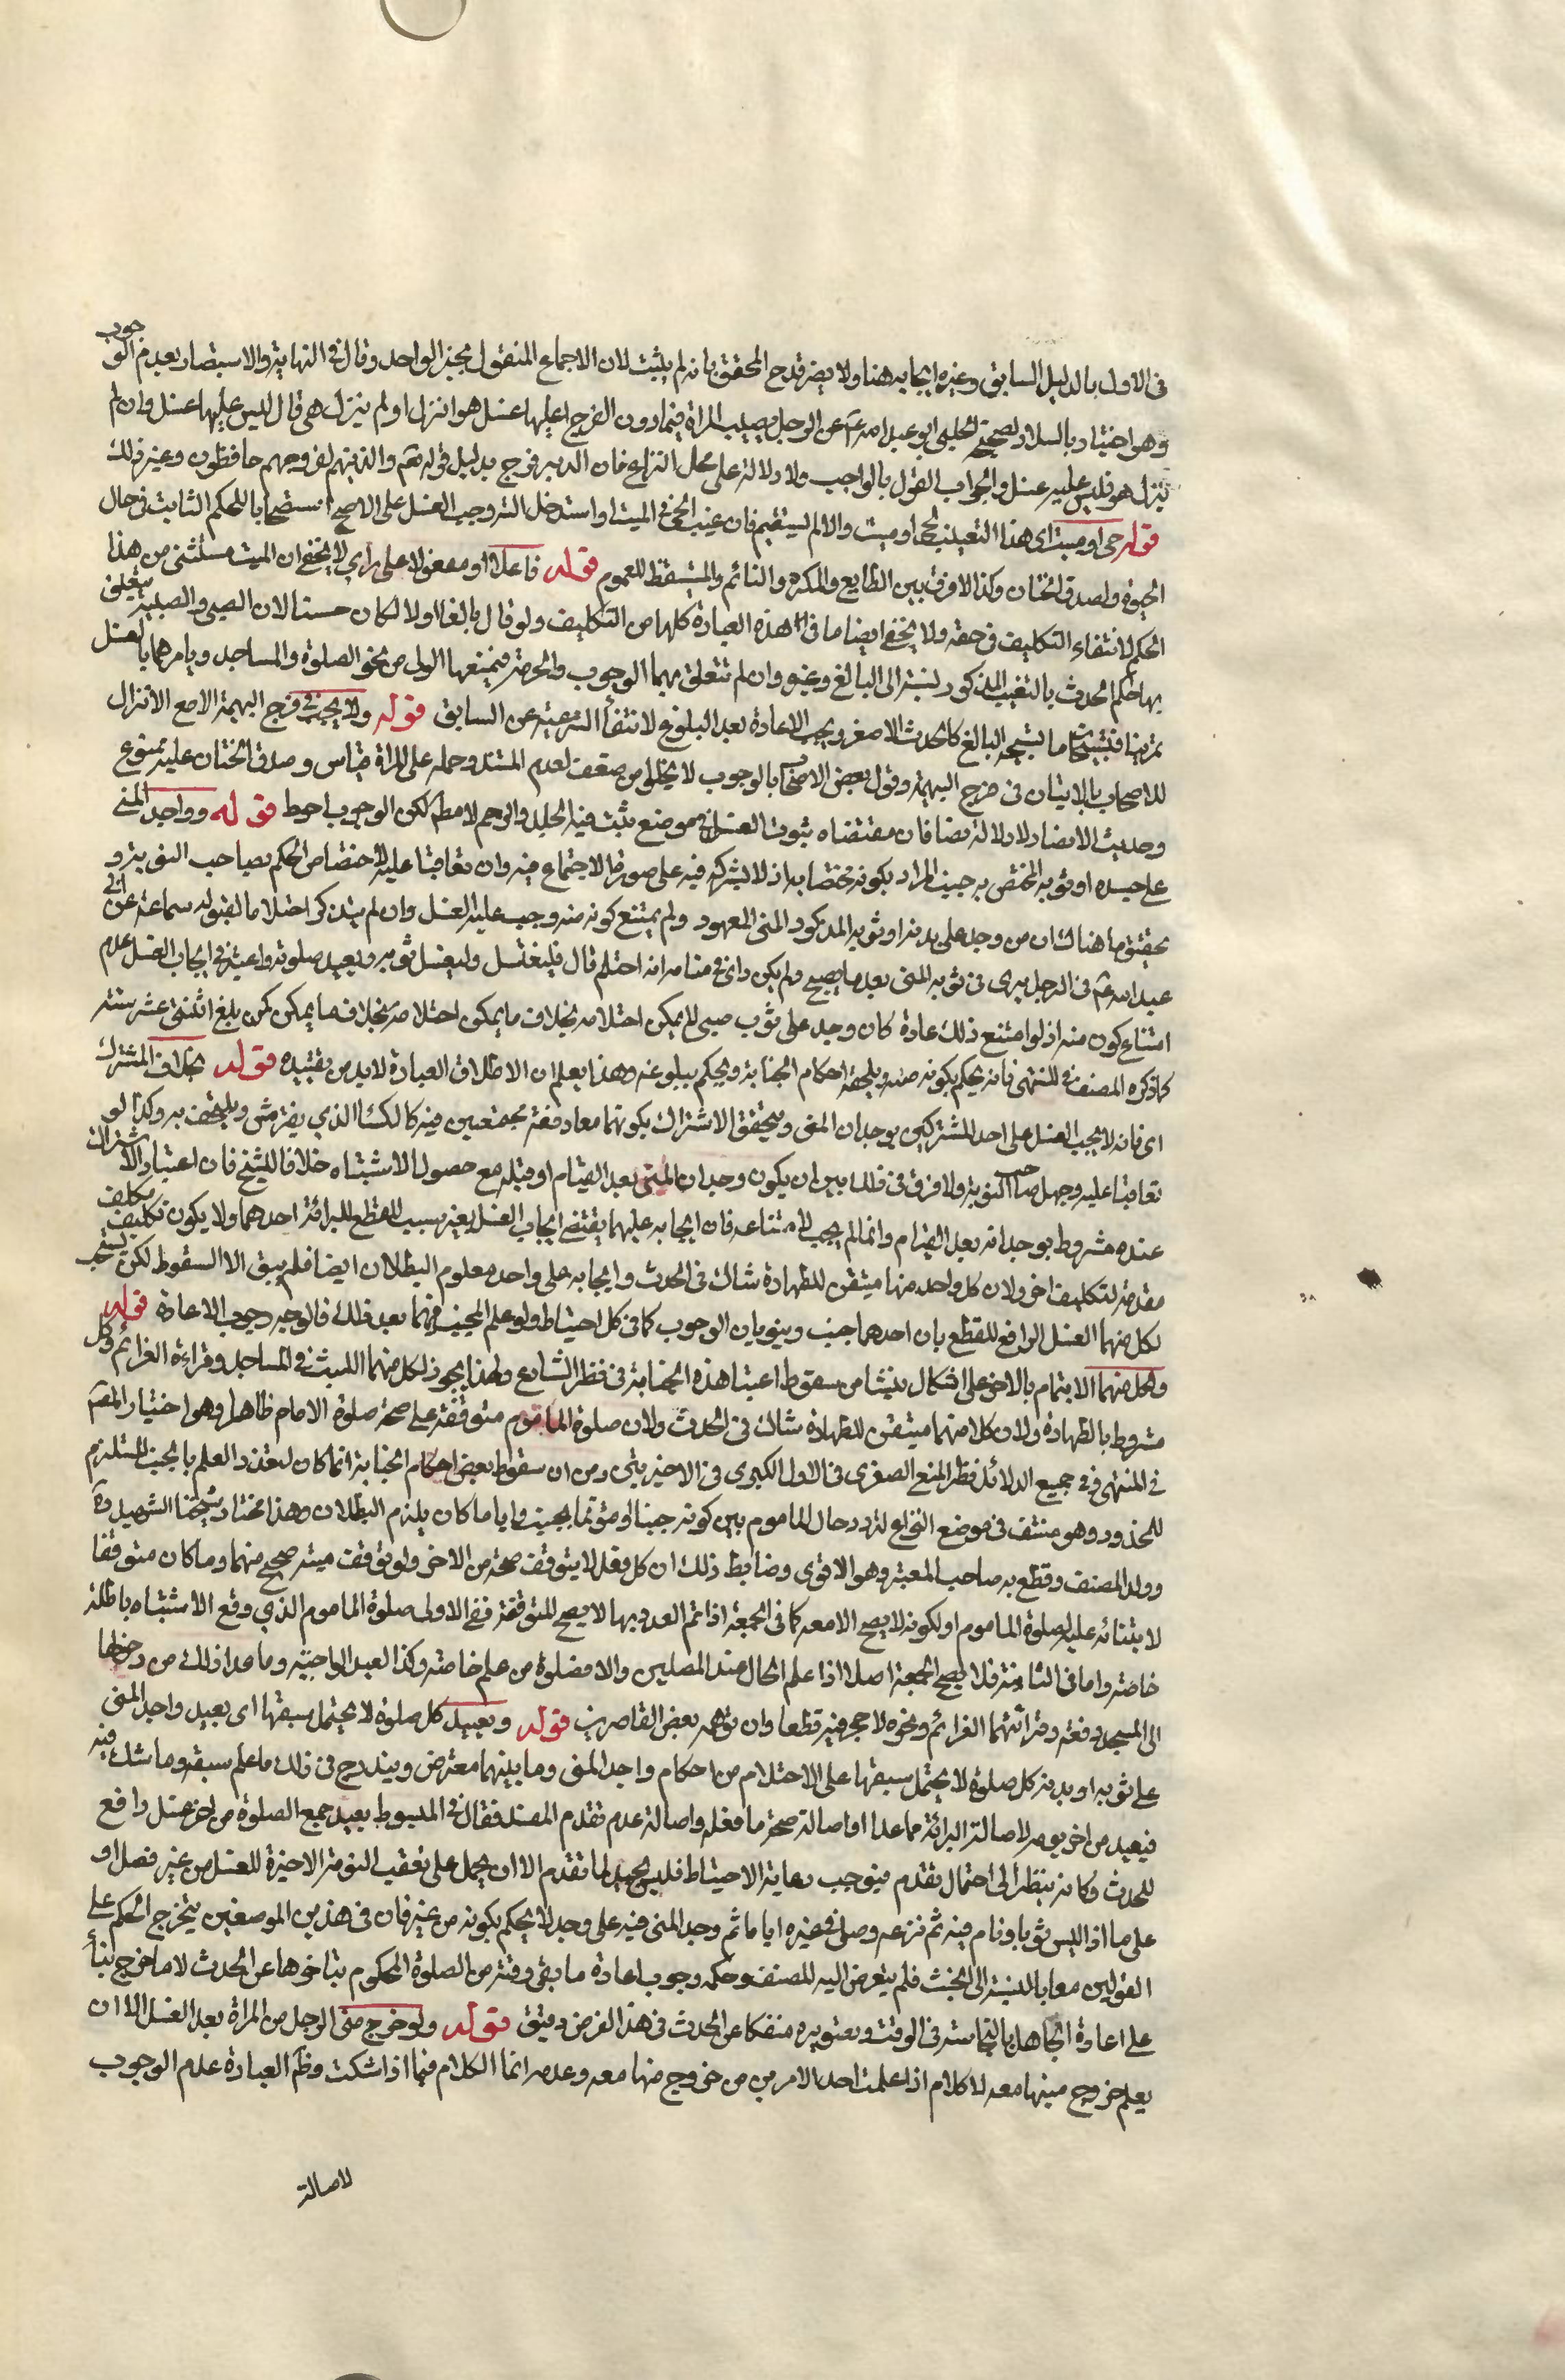 في الاول بالدليل السابق وغيره ايجابه هنا ولا يضر قدح المحقق بانه لم يثبت لان الاجماع المنقول بخبر الواحد وقال في النهاية والاستبصار بعدم الوجوب
وهو اختيار سلار لصحيحة الحلبي ابو عبد الله ع عن الرجل يصيب المراة فيما دون الفرج اعليها غسل هو انزل او لم ينزل هي قال ليس عليها غسل وان لم
ينزل هو فليس عليه غسل والجواب القول بالواجب ولا دلالة على محل النزاع فان الدبر فرج بدليل قوله تع والذينهم لفروجهم حافظون وغير ذلك
قوله حي او ميت اي هذا التغيب لحي او ميت والا لم يستقيم فان غيب الحي في الميت او استدخل الته وجب الغسل على الاصح استصحابا للحكم الثابت في حال
الحيوة ولصدق الختان وكذا لا فرق بين الطايع والمكره والنائم والمستيقظ للعموم قوله فاعلا او مفعولا على راي لا يخفى ان الميت مستثنى من هذا
الحكم لانتفاء التكليف في حقه ولا يخفى ايضا ما في هذه العبارة كلها من التكليف ولو قال بالغا اولا لكان حسنا لان الصبي والصبية يتعلق
بهما حكم الحدث بالتغيب المذكور لنسبة الى البالغ وغيره وان لم تتعلق بهما الوجوب والحرمة فيمنعهما الولي من نحو الصلوة والمساجد ويامرهما بالغسل
تمرينا فيستبيحان ما يستبيحه البالغ كالحدث الاصغر ويجب الاعادة بعد البلوغ لانتفاء الشرعية عن السابق قوله ولا يجب في فرج البهيمة الا مع الانزال
للاصحاب بالاتيان في فرج البهيمة وقول بعض الاصحاب بالوجوب لا يخلو من ضعف لعدم المستند وحمله على المراة قياس وصدق الختان عليه ممنوع
وحديث الانصار لا دلالة فيه ايضا فان مقتضاه ثبوت الغسل في موضع يثبت فيه الجلد والرجم لا مطلقا لكن الوجوب احوط قوله وواجد المني
على جسده او ثوبه المختص به جنب المراد بكونه مختصا به اذ لا يشركه فيه على صورة الاجتماع فيه وان تعاقبا عليه لاختصاص الحكم بصاحب النوبة و
تحقيق ما هنالك ان من وجد على بدنه او ثوبه المذكور المني المعهود ولم يمتنع كونه منه وجب عليه الغسل وان لم يتذكر احتلاما لقوله سماعة عن ابي
عبد الله ع في الرجل يرى في ثوبه المني بعد ما يصبح ولم يكن راى في منامه انه احتلم قال فليغتسل وليغسل ثوبه ويعيد صلوته واعتبر في ايجاب الغسل عدم
امتناع كون منه اذ لو امتنع ذلك عادة كان وجد على ثوب صبي لم يمكن احتلامه بخلاف ما يمكن احتلامه بخلاف ما يمكن كمن بلغ اثنتي عشر سنة
كما ذكره المصنف في المنتهى فانه يحكم بكونه منه ويلحقه احكام الجنابة ويحكم ببلوغه وهذا يعلم ان الاطلاق العبارة لا بد من تقييده قوله بخلاف المشترك
اي فانه لا يجب الغسل على احد المشتركين بوجدان المني ويتحقق الاشتراك بكونهما معا دفعة مجتمعين فيه كالكساء الذي يفترش ويلتحف به وكذا لو
تعاقبا عليه وجهل صاحب النوبة ولا فرق في ذلك بين ان يكون وجدان المني بعد القيام او قبله مع حصول الاشتباه خلافا للشيخ فان اعتبار الاشتراك
عنده مشروط بوجدانه بعد القيام وانما لم يجب لامتناعه فان ايجابه عليهما يقتضي ايجاب الغسل بغير سبب للقطع للبرائة احدهما ولا يكون تكليف مكلف
مقدمة لتكليف اخر ولان كل واحد منهما متيقن للطهارة شاك في الحدث وايجابه على واحد معلوم البطلان ايضا فلم يبق الا السقوط لكن يستحب
لكل منهما الغسل الرافع للقطع بان احدهما جنب وينويان الوجوب كما في كل احتياط ولو علم المجنب منهما بعد ذلك فالوجه وجوب الاعادة قوله
ولكل منهما الايتمام بالاخر على اشكال ينشا من سقوط اعتبار هذه الجنابة في نظر الشارع ولهذا يجوز لكل منهما اللبث في المساجد وقراءة العزائم وكل
مشروط بالطهارة ولان كلا منهما متيقن للطهارة شاك في الحدث ولان صلوة الماموم متوقفة على صحة صلوة الامام ظاهرا وهو اختيار المص
في المنتهى وفي جميع الدلائل نظر المنع الصغرى في الاول الكبرى في الاخيرتين ومن ان سقوط بعض احكام الجنابة انما كان لتعذر العلم بالجنب المستلزم
للمحذور وهو منتف في موضع النزاع لتردد حال الماموم بين كونه جنبا او مؤتما بجنب وايا ما كان يلزم البطلان وهذا مختار شيخنا الشهيد ره
وولد المصنف وقطع به صاحب المعتبر وهو الاقوى وضابط ذلك ان كل فعل لا يتوقف صحة من الاخر ولو توقفت فيه صح منهما وما كان متوقفا
لابتنائه عليه كصلوة الماموم او لكونه لا يصح الا معه كما في الجمعة اذا تم العدد بهما لا يصح للمتوقفة ففي الاولى صلوة الماموم الذي وقع الاشتباه باطلة
خاصة واما في الثانية فلا يصح الجمعة اصلا اذا علم الحال عند المصلين والا فصلوة من علم خاصة وكذا العيد الواجبة وما عدا ذلك من دخولها
الى المسجد دفعة وقرائتهما العزائم ونحوه لا حجر فيه قطعا وان توهمه بعض القاصرين قوله ويعيد كل صلوة لا يحتمل سبقها اي يعيد واجد المني
على ثوبه او بدنه كل صلوة لا يحتمل سبقها على الاحتلام من احكام واجد المني وما بينهما معترض ويندرج في ذلك ما علم سبقه وما شك فيه
فيعيد من اخر نومه لاصالة البرائة مما عدا او اصالة صحة ما فعله واصالة عدم تقدم المفسد فقال في المبسوط يعيد جميع الصلوة من اخر غسل رافع
للحدث وكانه ينظر الى احتمال تقدم فيوجب رعاية الاحتياط فليس بجيد لما تقدم الا ان يحمل على تعقيب النومة الاخيرة للغسل من غير فصل او
على ما اذا لبس ثوبا ونام فيه ثم نزعه وصلى في غيره اياما ثم وجد المني فيه على وجه لا يحكم بكونه من غيره فان في هذين الموضعين يتخرج الحكم على
القولين معا بالنسبة الى الخبث فلم يتعرض اليه المصنف وحكمه وجوب اعادة ما بقي وقته من الصلوة المحكوم بتاخرها عن الحدث لا ما خرج بناء
على اعادة الجاهل بالنجاسة في الوقت وتصويره منفكا عن الحدث في هذا الفرض دقيق قوله ولو خرج مني الرجل من المراة بعد الغسل الا ان
يعلم خروج منيها معه لا كلام اذا علمت احد الامرين من خروج منها معه وعدمه انما الكلام فيما اذا شكت وظ العبارة عدم الوجوب
لاصالة